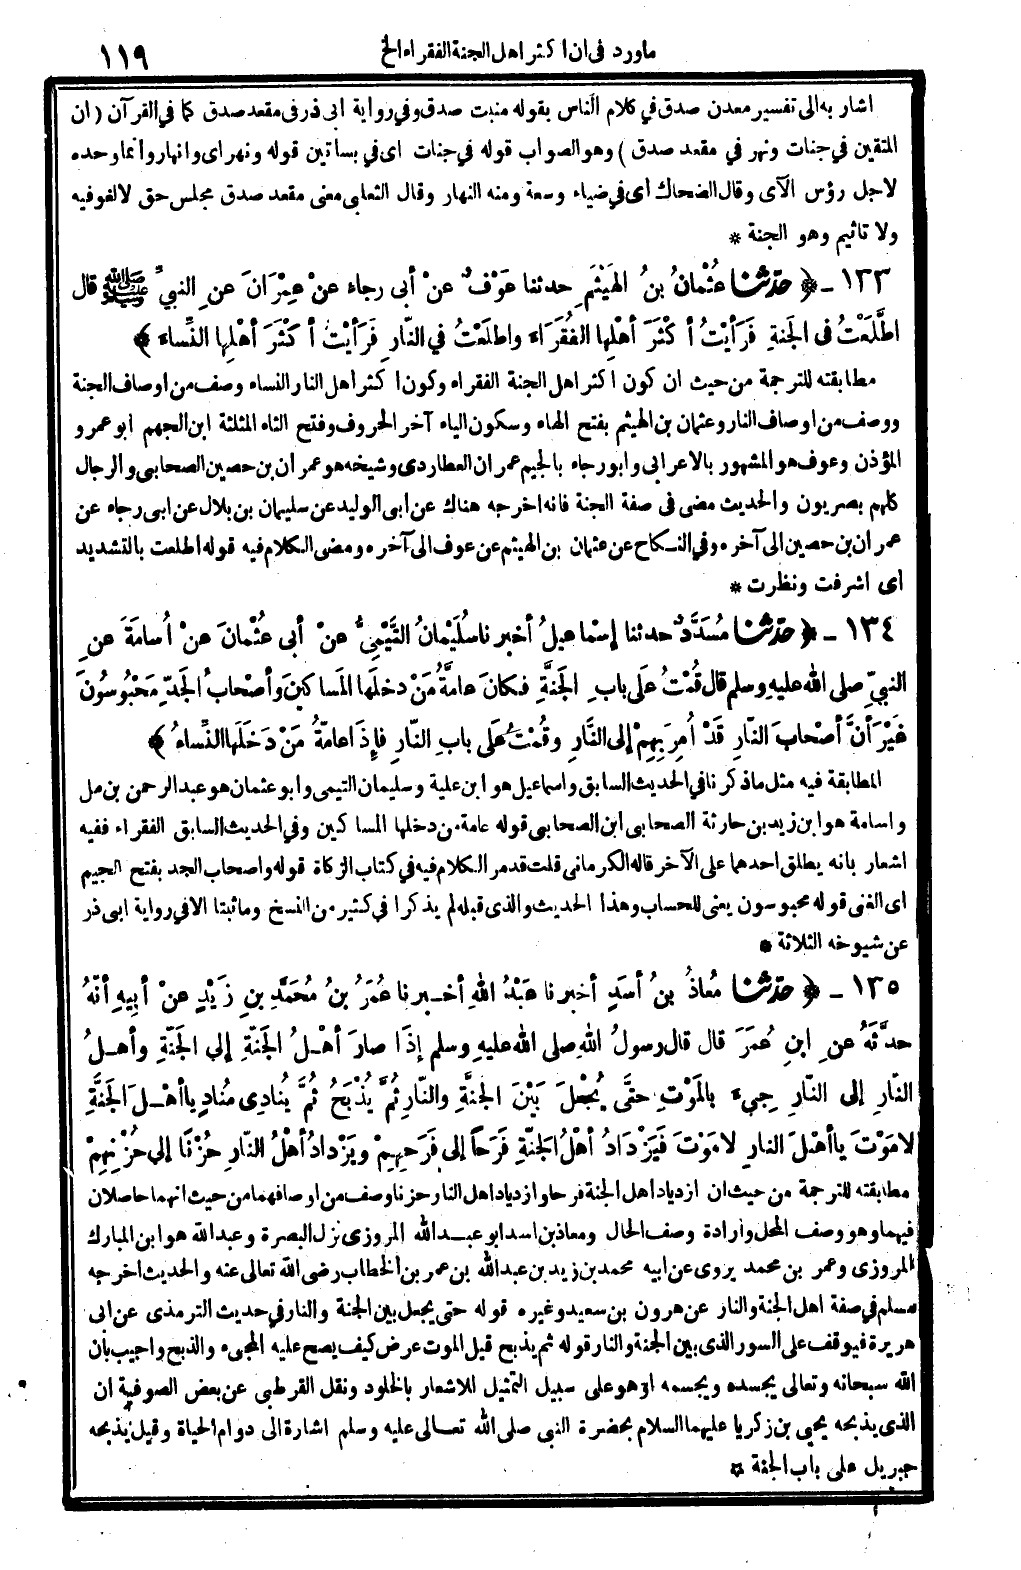 ماورد فى ان اكثر اهل الجنة الفقراء الخ ١١٩
اشار به الى تفسير معدن صدق في كلام الناس بقوله منبت صدق وفي رواية ابى ذر فى مقعد صدق كما في القرآن ( ان
المتقين في جنات ونهر في مقعد صدق ) وهو الصواب قوله في جنات اى في بساتين قوله ونهر اى وانهار وانما وحده
لاجل رؤس الآى وقال الضحاك اى في ضياء وسعة ومنه النهار وقال الثعلبى معنى مقعد صدق مجلس حق لا لغو فيه
ولا تاثيم وهو الجنة *
١٣٣ - ﴿ حدثنا عُثْمانُ بنُ الهَيْثَمِ حدثنا عَوْفٌ عنْ أبى رجاء عنْ عِمْرَانَ عنِ النبيِّ ﷺ قال
اطَّلَعْتُ فى الجَنةِ فَرَأيْتُ أكْثَرَ أهْلِها الفُقَرَاءَ واطلَعْتُ في النَّارِ فَرَأيْتُ أكْثَرَ أهْلِها النِّساءَ ﴾
مطابقته للترجمة من حيث ان كون اكثر اهل الجنة الفقراء وكون اكثر اهل النار النساء وصف من اوصاف الجنة
ووصف من اوصاف النار وعثمان بن الهيثم بفتح الهاء وسكون الياء آخر الحروف وفتح الثاء المثلثة ابن الجهم ابو عمرو
المؤذن وعوف هو المشهور بالاعرابى وابو رجاء بالجيم عمران العطاردى وشيخه هو عمران بن حصين الصحابى والرجال
كلهم بصريون والحديث مضى فى صفة الجنة فانه اخرجه هناك عن ابى الوليد عن سليمان بن بلال عن ابى رجاء عن
عمران بن حصين الى آخره وفي النكاح عن عثمان بن الهيثم عن عوف الى آخره ومضى الكلام فيه قوله اطلعت بالتشديد
اى اشرفت ونظرت *
١٣٤ - ﴿ حدثنا مُسَدَّدٌ حدثنا إسْماعيلُ أخبرنا سُلَيْمانُ التَّيْمِيُّ عنْ أبى عُثْمانَ عنْ أُسامَةَ عنِ
النبيِّ صلى الله عليه وسلم قال قُمْتُ عَلَى بابِ الجَنَّةِ فكانَ عامةُ مَنْ دخلَها المَساكينَ وأصْحابُ الجَدِّ مَحْبُوسُونَ
غَيْرَ أنَّ أصْحابَ النارِ قَدْ أُمِرَ بِهِمْ إلى النَّارِ وقُمْتُ عَلَى بابِ النارِ فإذَا عامةُ مَنْ دَخَلَها النِّساءُ ﴾
المطابقة فيه مثل ما ذكرنا في الحديث السابق واسماعيل هو ابن علية وسليمان التيمى وابو عثمان هو عبد الرحمن بن مل
واسامة هو ابن زيد بن حارثة الصحابى ابن الصحابى قوله عامة من دخلها المساكين وفي الحديث السابق الفقراء ففيه
اشعار بانه يطلق احدهما على الآخر قاله الكرمانى قلت قدمر الكلام فيه في كتاب الزكاة قوله واصحاب الجد بفتح الجيم
اى الغنى قوله محبوسون يعنى للحساب وهذا الحديث والذى قبله لم يذكرا في كثير من النسخ وما ثبتا الا في رواية ابى ذر
عن شيوخه الثلاثة *
١٣٥ - ﴿ حدثنا مُعاذُ بنُ أسَدٍ أخبرنا عَبْدُ اللهِ أخبرنا عُمَرُ بنُ مُحَمَّدِ بنِ زَيْدٍ عنْ أبِيهِ أنَّهُ
حدَّثَهُ عنِ ابنِ عُمَرَ قال قال رسولُ اللهِ صلى الله عليه وسلم إذَا صارَ أهْلُ الجَنةِ إلى الجَنَّةِ وأهلُ
النَّارِ إلى النَّارِ جِيءَ بالمَوْتِ حتَّى يُجْعلَ بَيْنَ الجَنةِ والنَّارِ ثُمَّ يُذْبَحُ ثُمَّ يُنادِى مُنادٍ ياأهْلَ الجَنَّةِ
لا مَوْتَ ياأهْلَ النارِ لا مَوْتَ فَيَزْدَادُ أهْلُ الجَنّةِ فَرَحاً إلى فَرَحِهِمْ ويَزْدادُ أهْلُ النَّارِ حُزْنًا إلى حُزْنِهِمْ
مطابقته للترجمة من حيث ان ازدياد اهل الجنة فرحا وازدياد اهل النار حزنا وصف من اوصافهما من حيث انهما حاصلان
فيهما وهو وصف المحل وارادة وصف الحال ومعاذ بن اسد ابو عبد الله المروزى نزل البصرة وعبد الله هو ابن المبارك
المروزى وعمر بن محمد يروى عن ابيه محمد بن زيد بن عبد الله بن عمر بن الخطاب رضى الله تعالى عنه والحديث اخرجه
مسلم في صفة اهل الجنة والنار عن هرون بن سعيد وغيره قوله حتى يجعل بين الجنة والنار في حديث الترمذى عن ابى
هريرة فيوقف على السور الذى بين الجنة والنار قوله ثم يذبح قيل الموت عرض كيف يصح عليه المجىء والذبح واجيب بأن
الله سبحانه وتعالى يجسده ويجسمه او هو على سبيل التمثيل للاشعار بالخلود ونقل القرطبى عن بعض الصوفية ان
الذى يذبحه يحيى بن زكريا عليهما السلام بحضرة النبى صلى الله تعالى عليه وسلم اشارة الى دوام الحياة وقيل يذبحه
جبريل على باب الجنة *